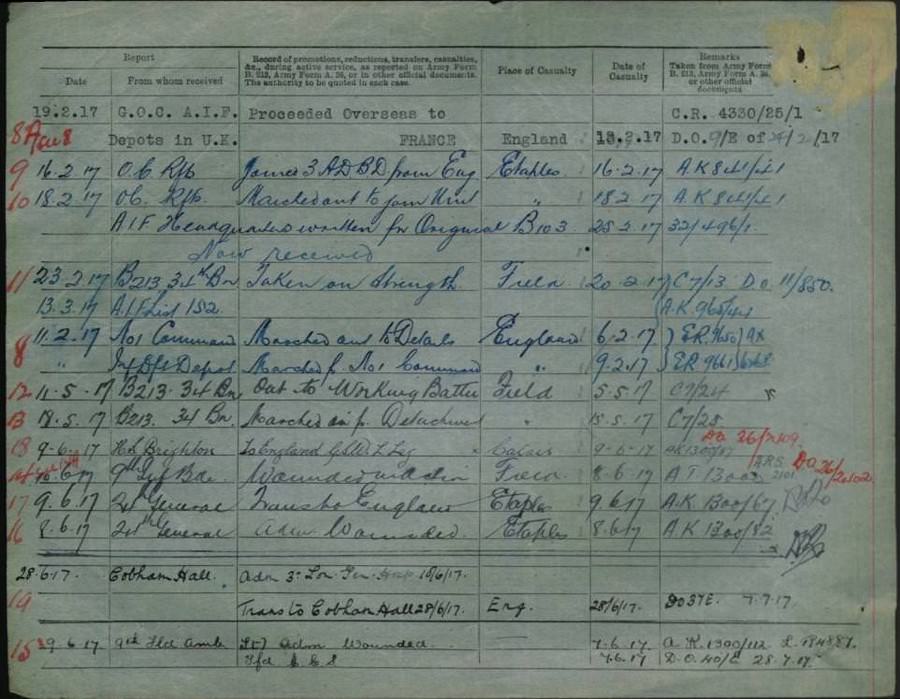 Report
Record of promotions, reductions, transfers, casualties, &c., during active service, as reported on Army Form B. 213, Army Form A. 36, or in other official documents. The authority to be quoted in each case.
Place of Casualty
Date of Casualty
Remarks
Taken from Army Form B. 213, Army Form A. 36, or other official documents
Date From whom received
19.2.17 G.O.C. A.I.F. Proceeded Overseas to C.R. 4330/25/1
8 Depots in U.K. FRANCE England 13.2.17 D.O. 9/E of /17
9 16.2.17 O.C. Rfts Joined 3 ADBD from Eng Etaples 16.2.17 A.K 841/41
10 18.2.17 O.C. Rfts. Marched out to join Unit " 18.2.17 A.K 841/41
AIF Headquarters written for Original B103 25.2.17 32/496/1.
Now received
11 23.2.17 B213 34th Bn Taken on Strength Field 20.2.17 C7/13 D.O. 11/850.
13.3.17 A.I.F List 152 A.K. 965/41
8 11.2.17 No 1 Command Marched out to Details England 6.2.17 E.R. 9650
" Depot Marched f. No 1 Command " 9.2.17 E.R. 9661
12 11.5.17 B213. 34 Bn Out to Working Battn Field 5.5.17 C7/24
13 18.5.17 B213. 34 Bn. Marched in f. Detached " 15.5.17 C7/25
18 9-6-17 H.S. Brighton To England G.S.W. L. Leg Calais 9-6-17 AK1300/67 DO 36/2109
10.6.17 9th Inf Bde. Wounded in Action Field 8.6.17 A T 1300 DO 36/2102
17 9.6.17 24 General Trans to England Etaples 9.6.17 A.K. 1300/67
16 8.6.17 24th General Adm Wounded Etaples 8.6.17 A.K 1300/82
28.6.17. Cobham Hall. Adm 3rd Lon Gen Hosp 10/6/17.
19 Trans to Cobham Hall 28/6/17. Eng. 28/6/17. DO37E. 7.7.17
15 9.6.17 9th Fld Amb Adm Wounded 7.6.17. A.K. 1300/112
Tfd C C S 7.6.17 D.O. 40/E 28.7.17.